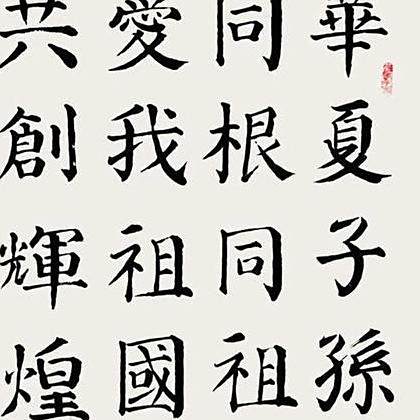 華夏子孫
同根同祖
愛我祖國
共創輝煌